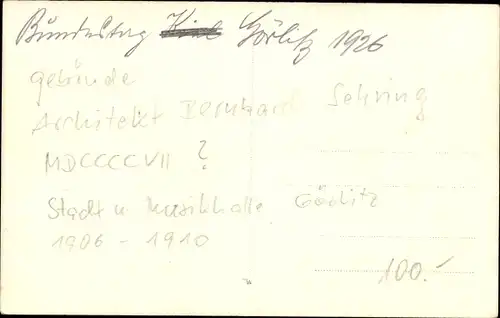 Bundestag Kiel Görlitz 1926
Gebäude
Architekt Bernhard Sehring
MDCCCCVII ?
Stadt u Musikhalle Görlitz
1906 - 1910
100.-